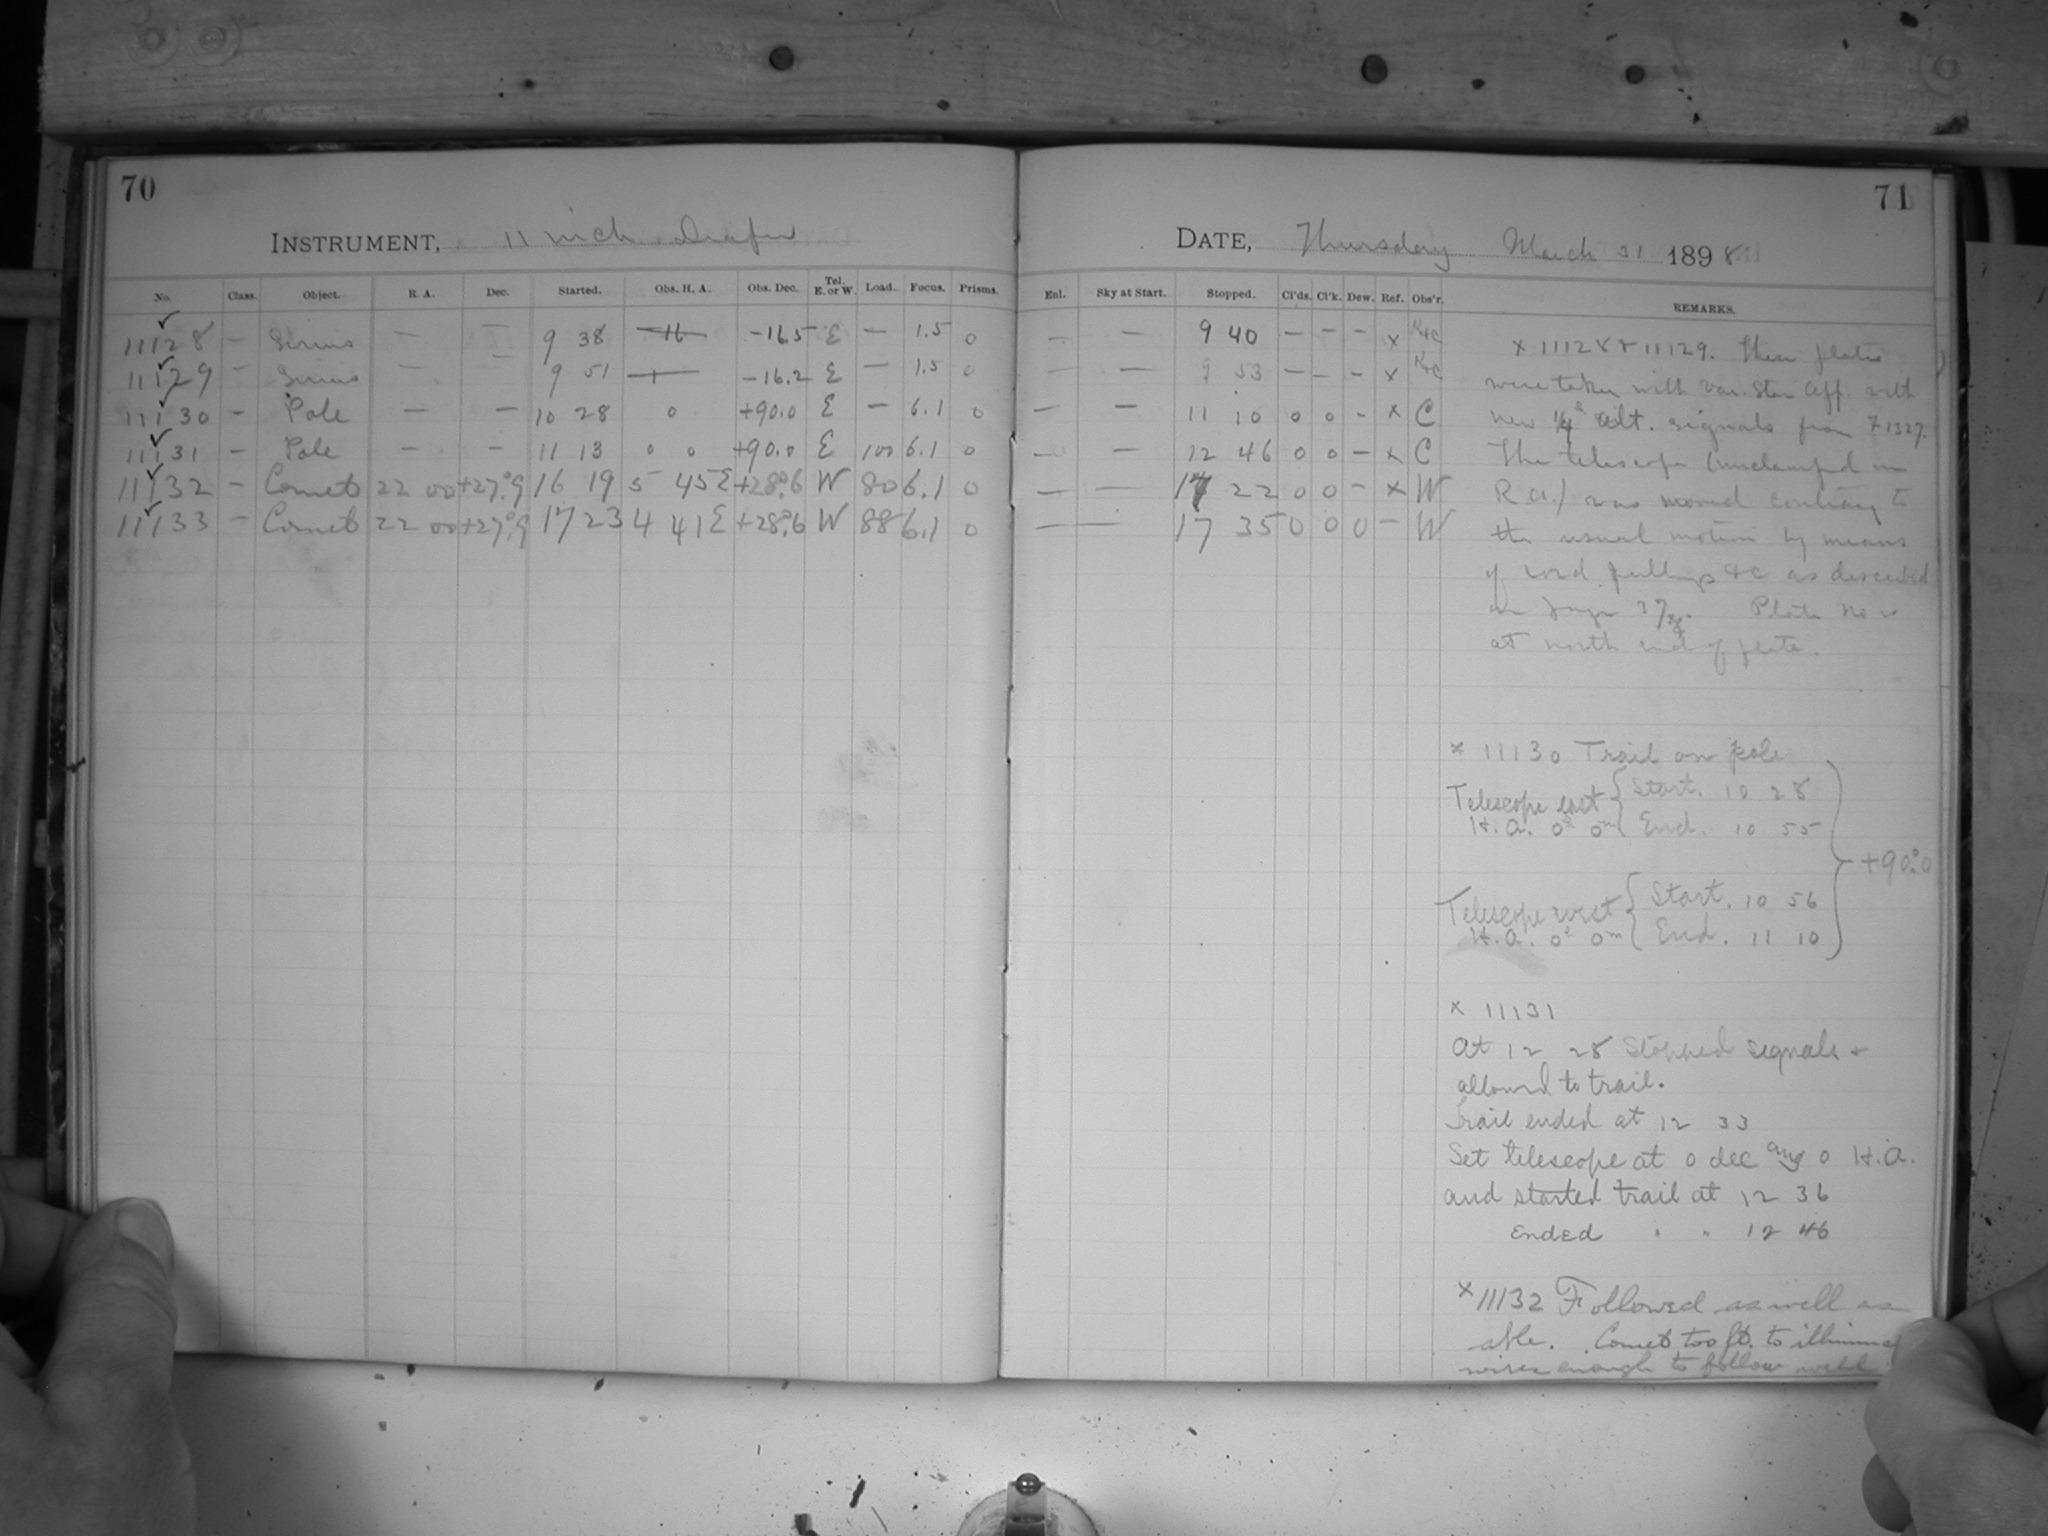 70
INSTRUMENT, 11 inch Draper
No. Class. Object. R. A. Dec. Started. Obs. H. A. Obs. Dec. Tel. E. or W. Load. Focus. Prisms.
11128 – Sirius — — 9 38 –16 –16.5 E — 1.5 0
11129 – Sirius — — 9 51 –16.2 E — 1.5 0
11130 – Pole — — 10 28 0 +90.0 E — 6.1 0
11131 – Pole — — 11 13 0 0 +90.0 E 100 6.1 0
11132 – Comet 22 00 +27°.9 16 19 5 45 E +28°.6 W 80 6.1 0
11133 – Comet 22 00 +27°.9 17 23 4 41 E +28°.6 W 88 6.1 0
71
DATE, Thursday March 31 1898
Enl. Sky at Start. Stopped. Cl'ds. Cl'k. Dew. Ref. Obs'r. REMARKS.
— — 9 40 – – – x K&C
— — 9 53 – – – x K&C
— — 11 10 0 0 - x C
— — 12 46 0 0 – x C
— — 17 22 0 0 - x W
— — 17 35 0 0 0 – W
x 11128 & 11129. These plates
were taken with Var. Star App. with
new signals from
The telescope (unclamped in
R.A.) was moved contrary to
the usual motion by means
of cord pulleys &c as described
on page Plate No is
at north end of plate.
x 11130 Trail on pole
Telescope east Start. 10 28
H.A. 0h 0m End. 10 55
+90°.0
Telescope west Start. 10 56
H.A. 0h 0m End. 11 10
x 11131
At 12 28 Stopped signals &
allowed to trail.
Trail ended at 12 33
Set telescope at 0 dec and 0 H.A.
and started trail at 12 36
Ended " " 12 46
x 11132 Followed as well as
able. Comet too ft. to illumine
wires enough to follow well